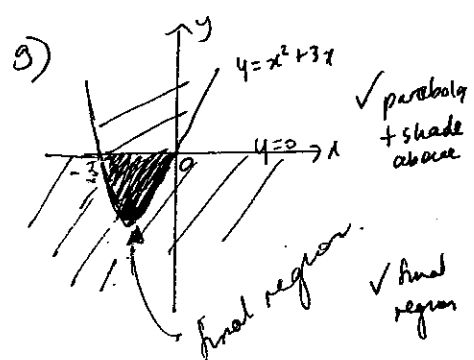 g)
y
y=x²+3x
✓ parabola
+ shade
above
y=0
x
-3
0
✓ final
region
final region.